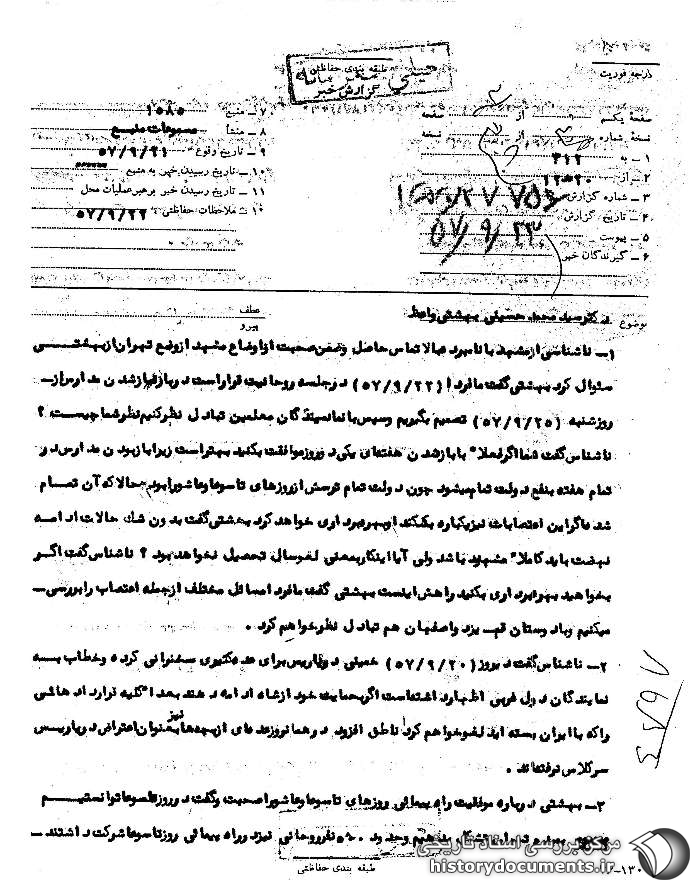 درجه فوریت
طبقه بندی حفاظتی
خیلی محرمانه
گزارش خبر
صفحه یکم از صفحه
نسخه شماره از نسخه
۱ - به ۳۱۲
۲ - از ۲۰ ه ۱۲
۳ - شماره گزارش
۴ - تاریخ گزارش ۵۷/۹/۲۳
۵ - پیوست
۶ - گیرندگان خبر
۷ - منبع ۱۵۸۵
۸ - منشأ مسموعات منبع
۹ - تاریخ وقوع ۵۷/۹/۲۱
۱۰ - تاریخ رسیدن خبر به منبع
۱۱ - تاریخ رسیدن خبر برهبر عملیات محل
۱۲ - ملاحظات حفاظتی ۵۷/۹/۲۲
موضوع دکتر سید محمد حسینی بهشتی واعظ
عطف
پیرو
۱- ناشناسی از مشهد با نامبرده بالا تماس حاصل وضمن صحبت از اوضاع مشهد از وضع تهران از بهشتی
سئوال کرد بهشتی گفت ما فردا (۵۷/۹/۲۲) در جلسه روحانیت قرار است درباره باز شدن مدارس از
روز شنبه (۵۷/۹/۲۵) تصمیم بگیریم وسپس با نمایندگان معلمین تبادل نظر کنیم نظر شما چیست ؟
ناشناس گفت شما اگر فعلا" با باز شدن هفته‌ای یکی دو روز موافقت بکنید بهتر است زیرا باز بودن مدارس در
تمام هفته بنفع دولت تمام میشود چون دولت تمام ترسش از روزهای تاسوعا وعاشورا بود حالا که آن تمام
شد ما اگر این اعتصابات نیز یکباره بکند او بهره‌برداری خواهد کرد بهشتی گفت بدون شك حالات ادامه
نهضت باید کاملا" مشهود باشد ولی آیا اینکار بمعنی لغو سال تحصیل نخواهد بود ؟ ناشناس گفت اگر
بخواهید بهره‌برداری بکنید راهش اینست بهشتی گفت ما فردا مسائل مختلف از جمله اعتصاب را بررسی -
میکنیم وبا دوستان قم یزد واصفهان هم تبادل نظر خواهم کرد .
۲- ناشناس گفت دیروز (۵۷/۹/۲۰) خمینی در پاریس برای عده کثیری سخنرانی کرده وخطاب به
نمایندگان دول غربی اظهار داشته است اگر بحمایت خود از شاه ادامه دهند بعدا" کلیه قراردادهائی
را که با ایران بسته اید لغو خواهم کرد ناطق افزود در همانروز عده‌ای از بچه‌ها نیز بعنوان اعتراض در پاریس
سر کلاس نرفته‌اند .
۳- بهشتی درباره موفقیت راه پیمائی روزهای تاسوعا وعاشورا صحبت وگفت در روز تاسوعا توانستیم
بدهیم وحدود ۵۰۰ نفر روحانی نیز در راه پیمائی روز تاسوعا شرکت داشتند -
طبقه بندی حفاظتی
۱۳۰
مرکز بررسی اسناد تاریخی
historydocuments.ir